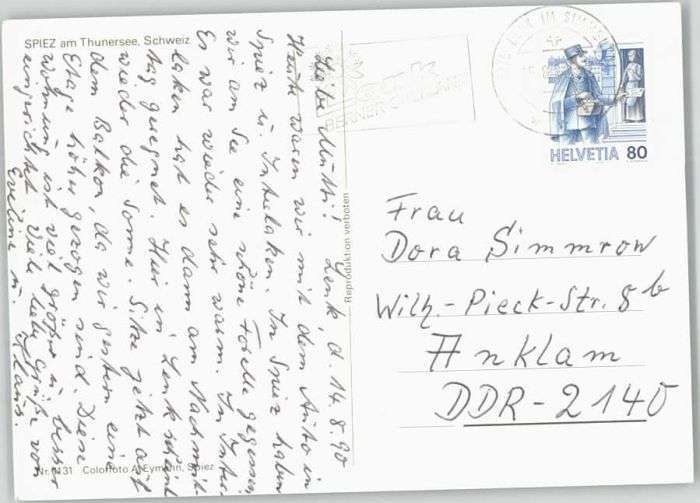 SPIEZ am Thunersee, Schweiz
Lenk, d. 14.8.90
Liebe Mutti!
Heute waren wir mit dem Auto in
Spiez u. Interlaken. In Spiez haben
wir am See eine schöne Forelle gegessen
Es war wieder sehr warm. In Inter-
laken hat es dann am Nachmit-
tag geregnet. Hier in Lenk scheint
wieder die Sonne. Sitze jetzt auf
dem Balkon, da wir gestern eine
Etage höher gezogen sind. Diese
Wohnung ist viel größer u. besser
eingerichtet. Viele liebe Grüße von
Eveline u. Klaus.
Nr. 1131 Colorfoto A. Eymann, Spiez
Reproduktion verboten
Lenk
BERNER OBERLAND
LENK IM SIMMEN
HELVETIA 80
Frau
Dora Simmrow
Wilh.-Pieck-Str. 8b
Anklam
DDR-2140